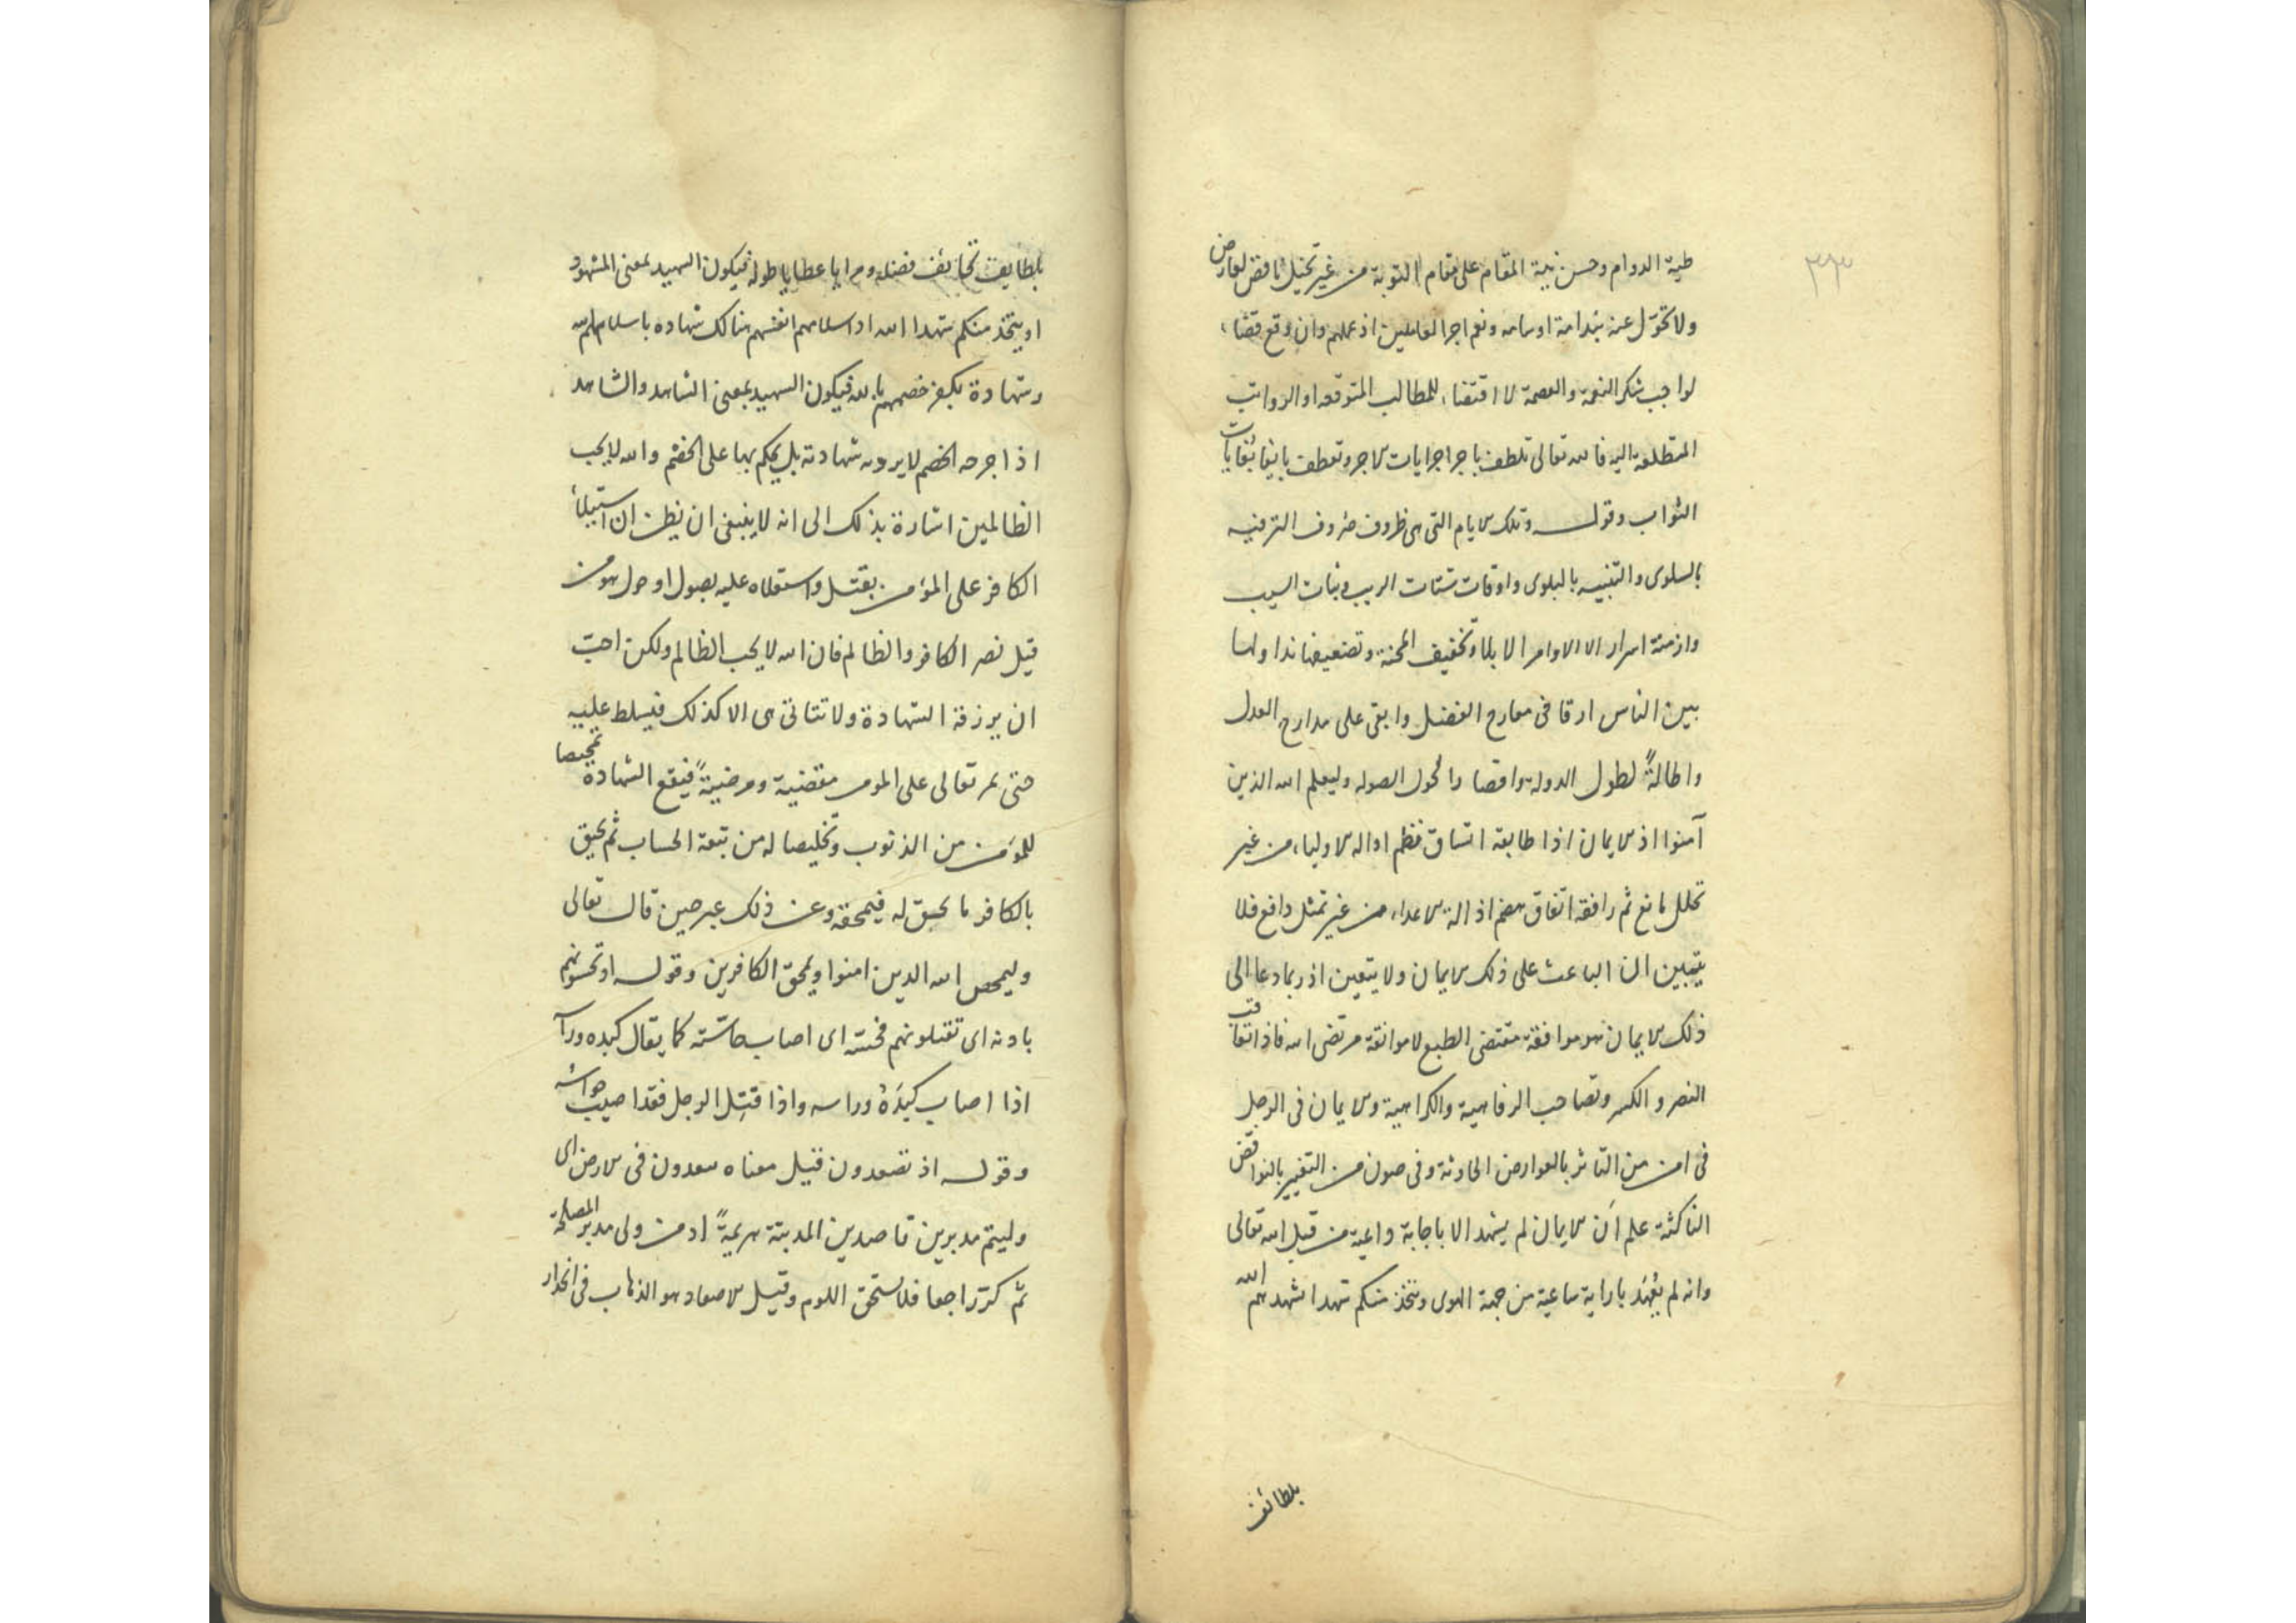 ٣٣
طية الدوام وحسن نية المقام على مقام التوبة من غير تخيل ناقض لعارض
ولا تحول عنه بندامة او سامه ونعم اجر العاملين اذ عملهم وان وقع قضاء
لواجب شكر النعمة والعصمة لا اقتضاء للمطالب المتوقعه او الرواتب
المتطلعه اليه فالله تعالى تلطف باجرا جرايات الاجر وتعطف بايفا
الثواب وقوله وتلك الايام التى هى ظروف صروف الترفيه
بالسلوى والتنبيه بالبلوى واوقات شتات الريب وثبات السيب
وازمنة اسرار الاوامر الابلا وتخفيف المحنة وتضعيفها نداولها
بين الناس ارقا فى معارج الفضل وابقى على مدارج العدل
واطالةً لطول الدوله واقصا والحول الصوله وليعلم الله الذين
آمنوا اذ الايمان اذا طابقه اتساق نظم اداله الاولياء من غير
تخلل مانع ثم رافقه اتفاق هضم اذالة الاعداء من غير تمثل دافع فلا
يتبين ان الباعث على ذلك الايمان ولا يتعين اذ ربما دعا الى
ذلك الايمان هو موافقة مقتضى الطبع لا موافقة مرتضى الله فاذا تعاقب
النصر والكسر وتصاحب الرفاهية والكراهية والايمان فى الرجل
فى امن من التاثر بالعوارض الحادثة وفى صون من التغيير بالنواقض
الناكثة علم أن الايمان لم يشهد الا باجابة داعية من قبل الله تعالى
وانه لم يعهد باراية ساعية من جهة الهوى ويتخذ منكم شهدا شهدهم الله
بلطائف
بلطايف تحائف فضله ومرايا عطايا طوله فيكون الشهيد بمعنى المشهود
او يتخذ منكم شهدا الله اذ اسلامهم انفسهم هنالك شهاده باسلامهم لله
وشهادة بكفر خصمهم بالله فيكون الشهيد بمعنى الشاهد والشاهد
اذا جرحه الخصم لا يرد به شهادته بل يحكم بها على الخصم والله لا يحب
الظالمين اشارة بذلك الى انه لا ينبغى ان يظن ان استيلأ
الكافر على المؤمن بقتل واستعلاه عليه بصول او حول هو من
قبل نصر الكافر والظالم فان الله لا يحب الظالم ولكن احبّ
ان يرزقه الشهادة ولا تتاتى هى الا كذلك فيسلط عليه
حتى يمر تعالى على المومن مقضية ومرضيةً فيقع الشهادة تمحيصا
للمؤمن من الذنوب وتخليصا له من تبعة الحساب ثم يحيق
بالكافر ما يحيق له فيمحقه وعن ذلك عبر حين قال تعالى
وليمحص الله الذين امنوا ويمحق الكافرين وقوله اذ تحسونهم
باذنه اى تقتلونهم فحسّه اى اصاب حاسّته كما يقال كبده ورآ
اذا اصاب كبدَهُ وراسه واذا قتل الرجل فقد اصيب حواسّه
وقوله اذ تصعدون قيل معناه تبعدون فى الارض اى
وليتم مدبرين قاصدين المدينة هزيمةً اذ من ولى مدبرا لمصلحة
ثم كرّ راجعا فلا يستحق اللوم وقيل الاصعاد هو الذهاب فى انحدار